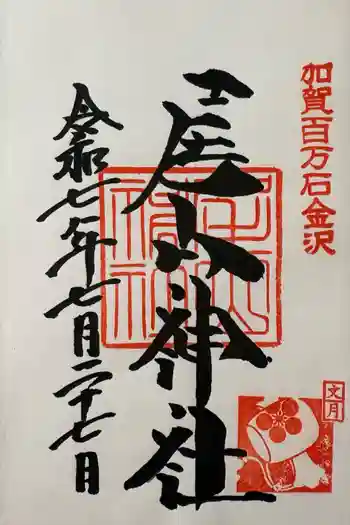 加賀百万石金沢
尾山神社
令和七年七月二十七日
文月